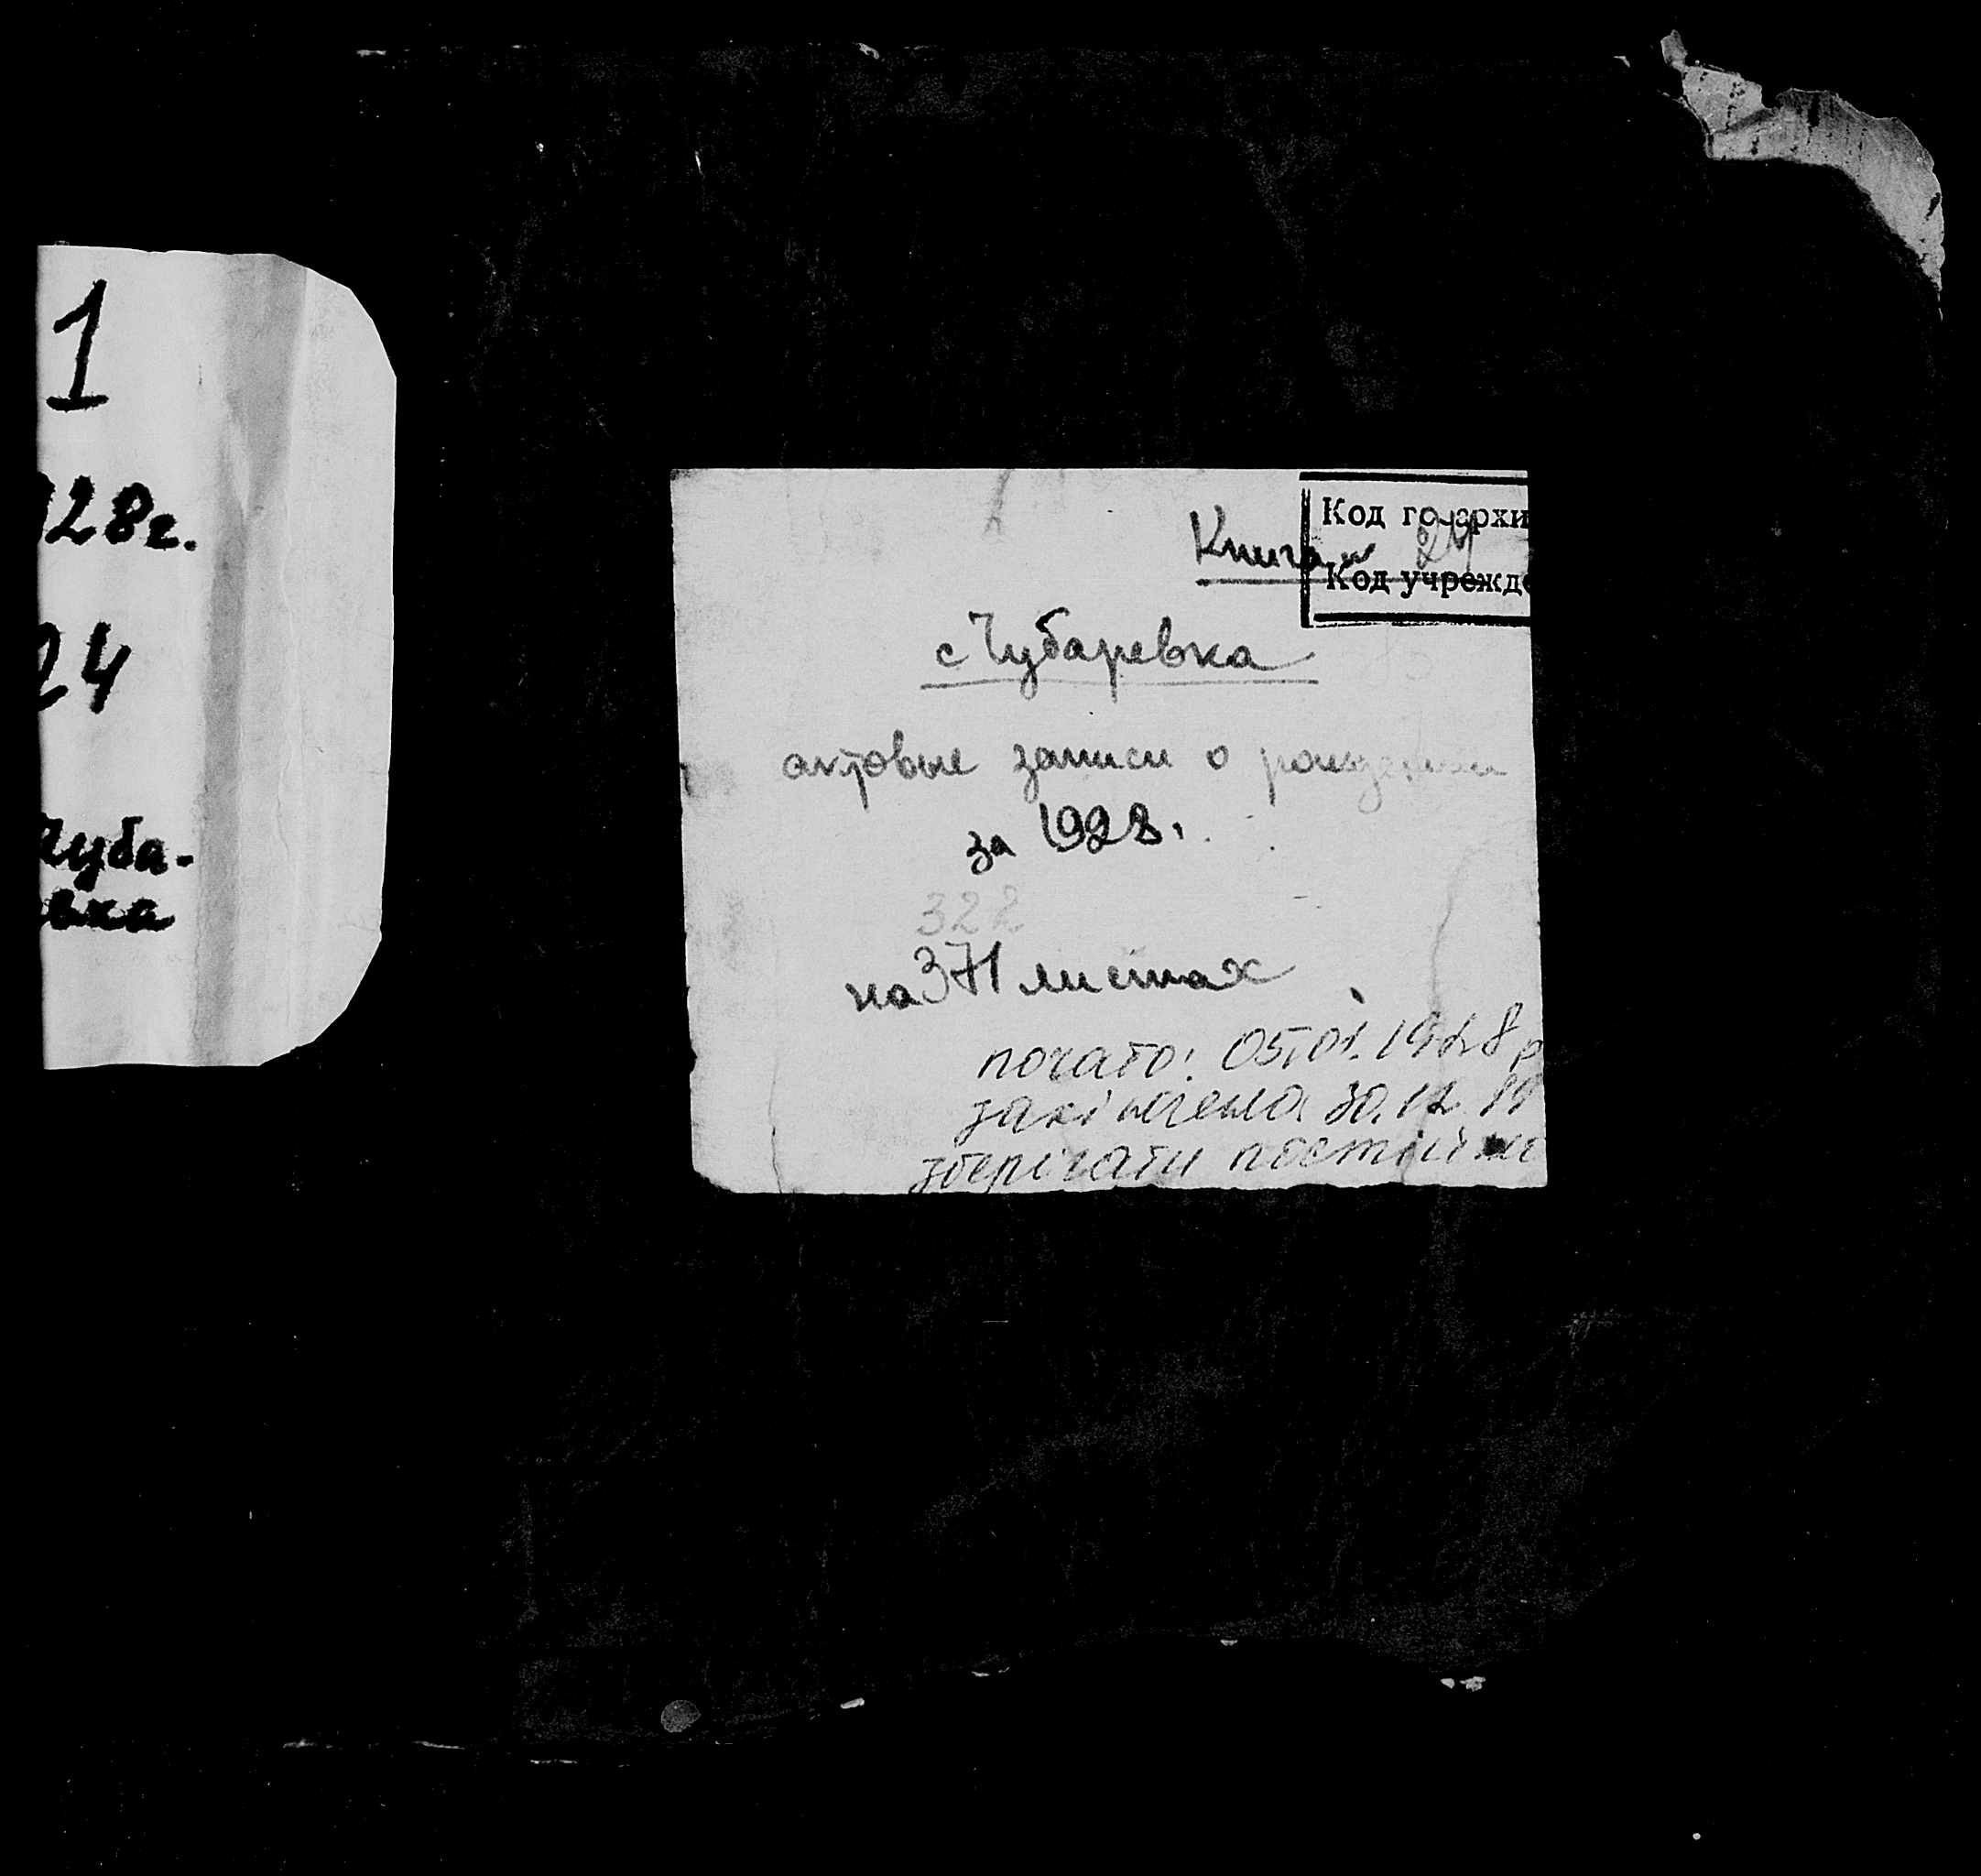 1
928г.
24
Чуба-
евка
Код госархи
Книга № 24
Код учрежде
с Чубаревка
актовые записи о рождении
за 1928.
322
на 371 листах
почато: 05.01.1928 р
закінчено 30.12.19
зберігати постійно